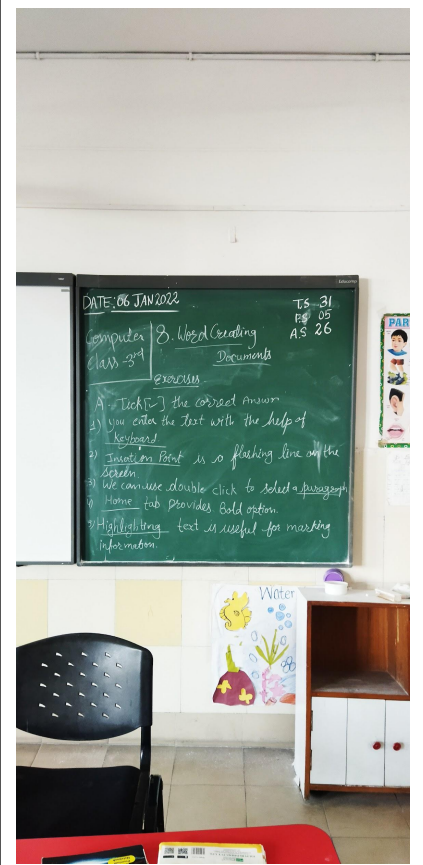 DATE: 06 JAN 2022
T.S 31
P.S 05
A.S 26
Computer
Class -3rd
8. Word Creating
Documents
Exercises
A - Tick[✓] the correct Answer
1) you enter the text with the help of
Keyboard
2) Insertion Point is a flashing line on the
screen
3) We can use double click to select a paragraph
4) Home tab provides Bold option.
5) Highlighting text is useful for marking
information.
PAR
Water